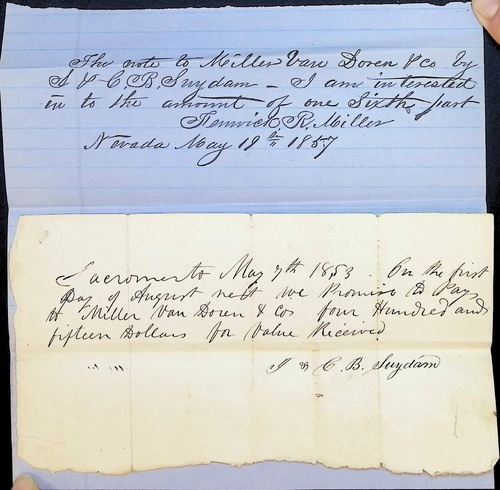 The note to Miller Van Doren & co by
& C. B. Suydam - I am interested
in to the amount of one Sixth part
Fenwick R. Miller
Nevada May 19th 1857
Sacromento May 7th 1853. On the first
Day of August next we Promise to Pay
to Miller Van Doren & Cos four Hundred and
fifteen Dollars for Value Received
J & C. B. Suydam